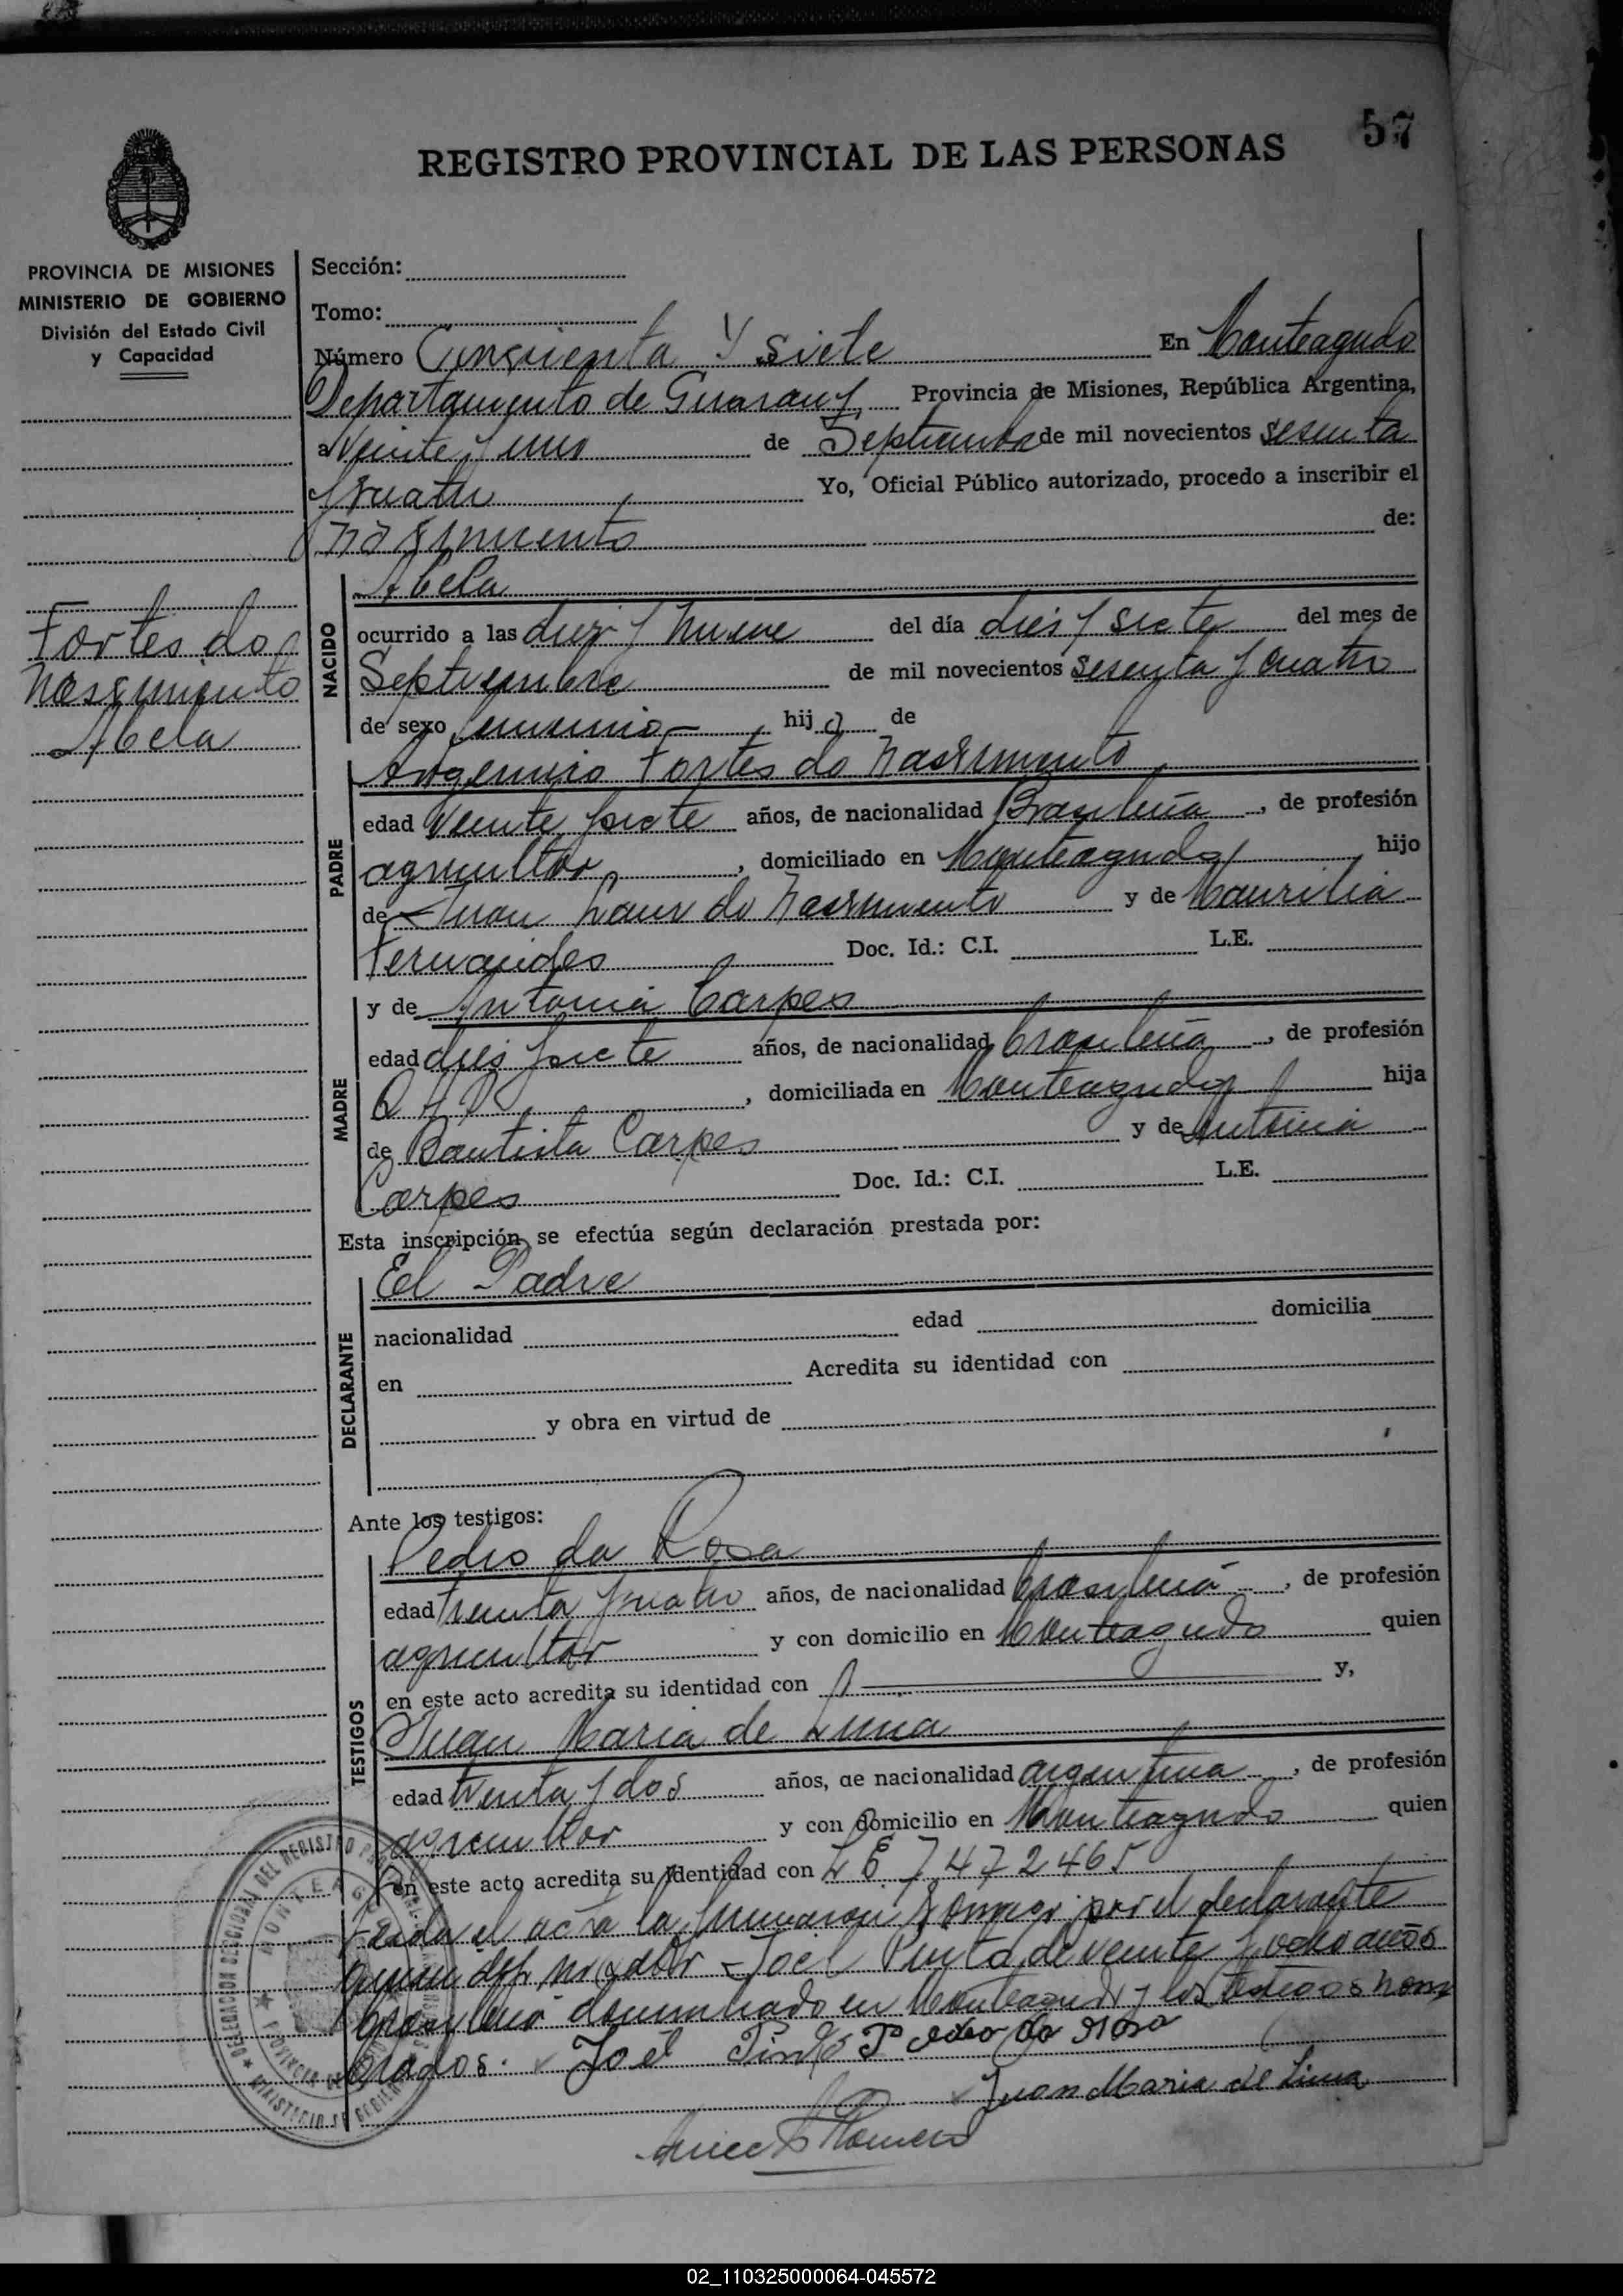 57
REGISTRO PROVINCIAL DE LAS PERSONAS
PROVINCIA DE MISIONES
MINISTERIO DE GOBIERNO
División del Estado Civil
y Capacidad
Sección:
Tomo:
Número Cinquenta y siete En Monteagudo
Departamento de Guarany Provincia de Misiones, República Argentina,
a Veinte y uno de Septiembre de mil novecientos sesenta
y cuatro Yo, Oficial Público autorizado, procedo a inscribir el
nasimiento de:
Fortes do
Nascimento
Abela
NACIDO
Abela
ocurrido a las diez y nueve del día dies y siete del mes de
Septiembre de mil novecientos sesenta y cuatro
de sexo femenino hija de
PADRE
Fortes do Nascimento
edad Veinte y siete años, de nacionalidad Brasileña, de profesión
agricultor, domiciliado en Monteagudo hijo
de Juan do Nascimento y de Maurilia
Fernandes Doc. Id.: C.I. L.E.
MADRE
y de Antonia Carpes
edad dies y siete años, de nacionalidad brasileña, de profesión
, domiciliada en Monteagudo hija
de Bautista Carpes y de Antonia
Carpes Doc. Id.: C.I. L.E.
Esta inscripción se efectúa según declaración prestada por:
DECLARANTE
El Padre
nacionalidad edad domicilia
en Acredita su identidad con
y obra en virtud de
Ante los testigos:
TESTIGOS
Pedro da Rosa
edad treinta y cuatro años, de nacionalidad brasileña, de profesión
agricultor y con domicilio en Monteagudo quien
en este acto acredita su identidad con y,
Juan Maria de Lima
edad treinta y dos años, de nacionalidad argentina, de profesión
agricultor y con domicilio en Monteagudo quien
en este acto acredita su identidad con LE 7.472465
Leida el acta la firmaron conmigo por el declarante
Joel Pinto de veinte y ocho años
brasileño domiciliado en Monteagudo y los testigos nom
brados. Joel Pinto Pedro da Rosa
Juan Maria de Lima
DELEGACION SECCIONAL DEL REGISTRO
MINISTERIO DE GOBIERNO
02_110325000064-045572